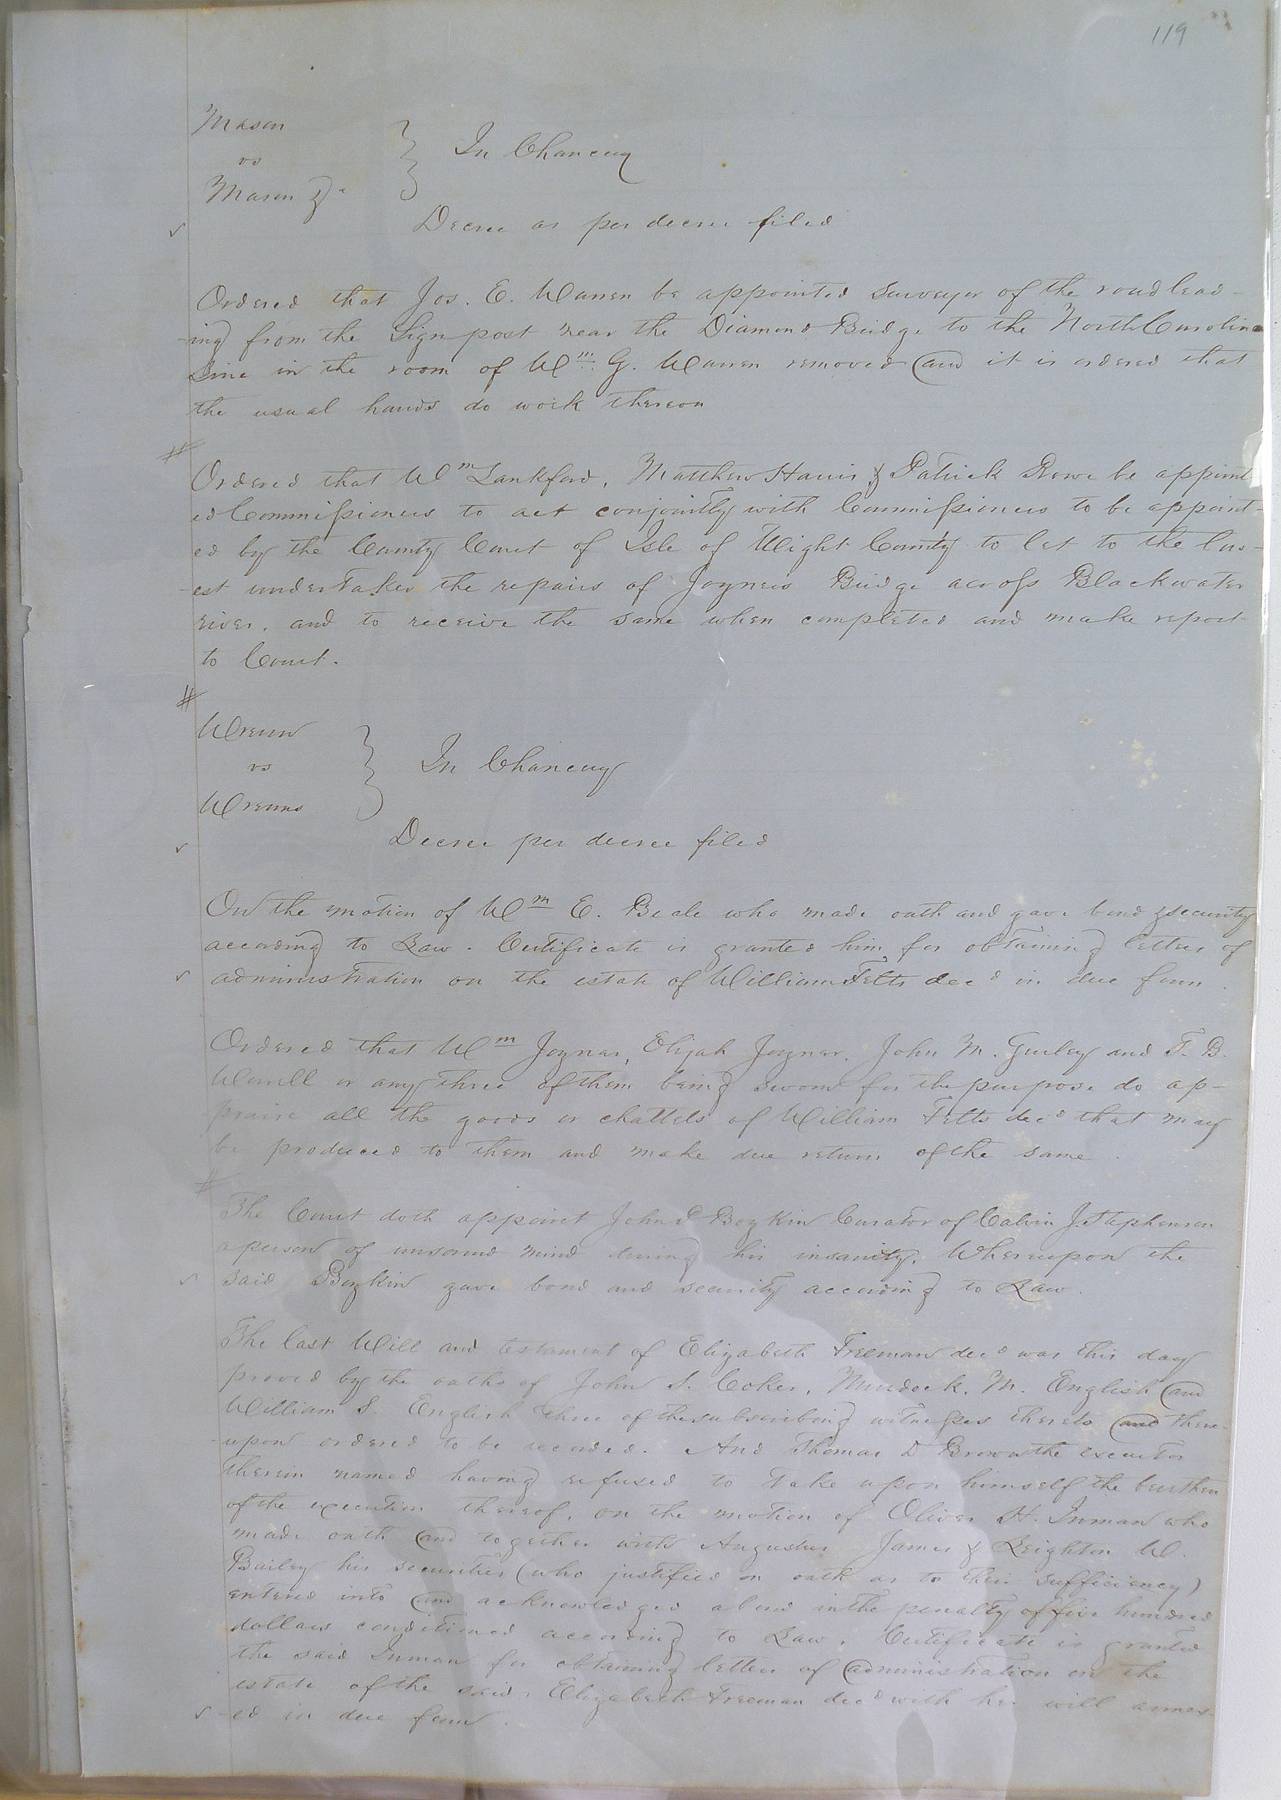 119
Mason
vs
Mason &c
In Chancery
Decree as per decree filed
Ordered that Jos. E. Warren be appointed Surveyor of the road lead-
-ing from the Sign post near the Diamond Bridge to the North Carolina
Line in the room of Wm. G. Warren removed and it is ordered that
the usual hands do work thereon
#
Ordered that Wm Lankford, Matthew Harris & Patrick Rowe be appoint
ed Commissioners to act conjointly with Commissioners to be appoint-
ed by the County Court of Isle of Wight County to let to the low-
-est undertaker the repairs of Joyners Bridge across Blackwater
river, and to receive the same when completed and make report
to Court.
#
Wrenn
vs
Wrenns
In Chancery
Decree per decree filed
On the motion of Wm E. Beale who made oath and gave bond & security
according to Law. Certificate is granted him for obtaining letters of
administration on the estate of William Felts decd in due form.
Ordered that Wm Joyner, Elijah Joyner, John M. Gurley and T. B.
Worrell or any three of them being sworn for the purpose do ap-
praise all the goods or chattels of William Felts decd that may
be produced to them and make due return of the same.
#
The Court doth appoint John Boykin Curator of Calvin J. Stephenson
a person of unsound mind during his insanity. Whereupon the
said Boykin gave bond and security according to Law.
The last Will and testament of Elizabeth Freeman decd was this day
proved by the oaths of John S. Coker, Murdock. M. English and
William S. English three of the subscribing witnesses thereto and there-
-upon ordered to be recorded. And Thomas D Brown the executor
therein named having refused to take upon himself the burthen
of the execution thereof, on the motion of Oliver H. Inman who
made oath and together with Augustus James & Leighton W.
Bailey his securities (who justified on oath as to their sufficiency)
entered into and acknowledged a bond in the penalty of five hundred
dollars conditioned according to Law. Certificate is granted
the said Inman for obtaining letters of administration on the
estate of the said Elizabeth Freeman decd with her will annex-
-ed in due form.